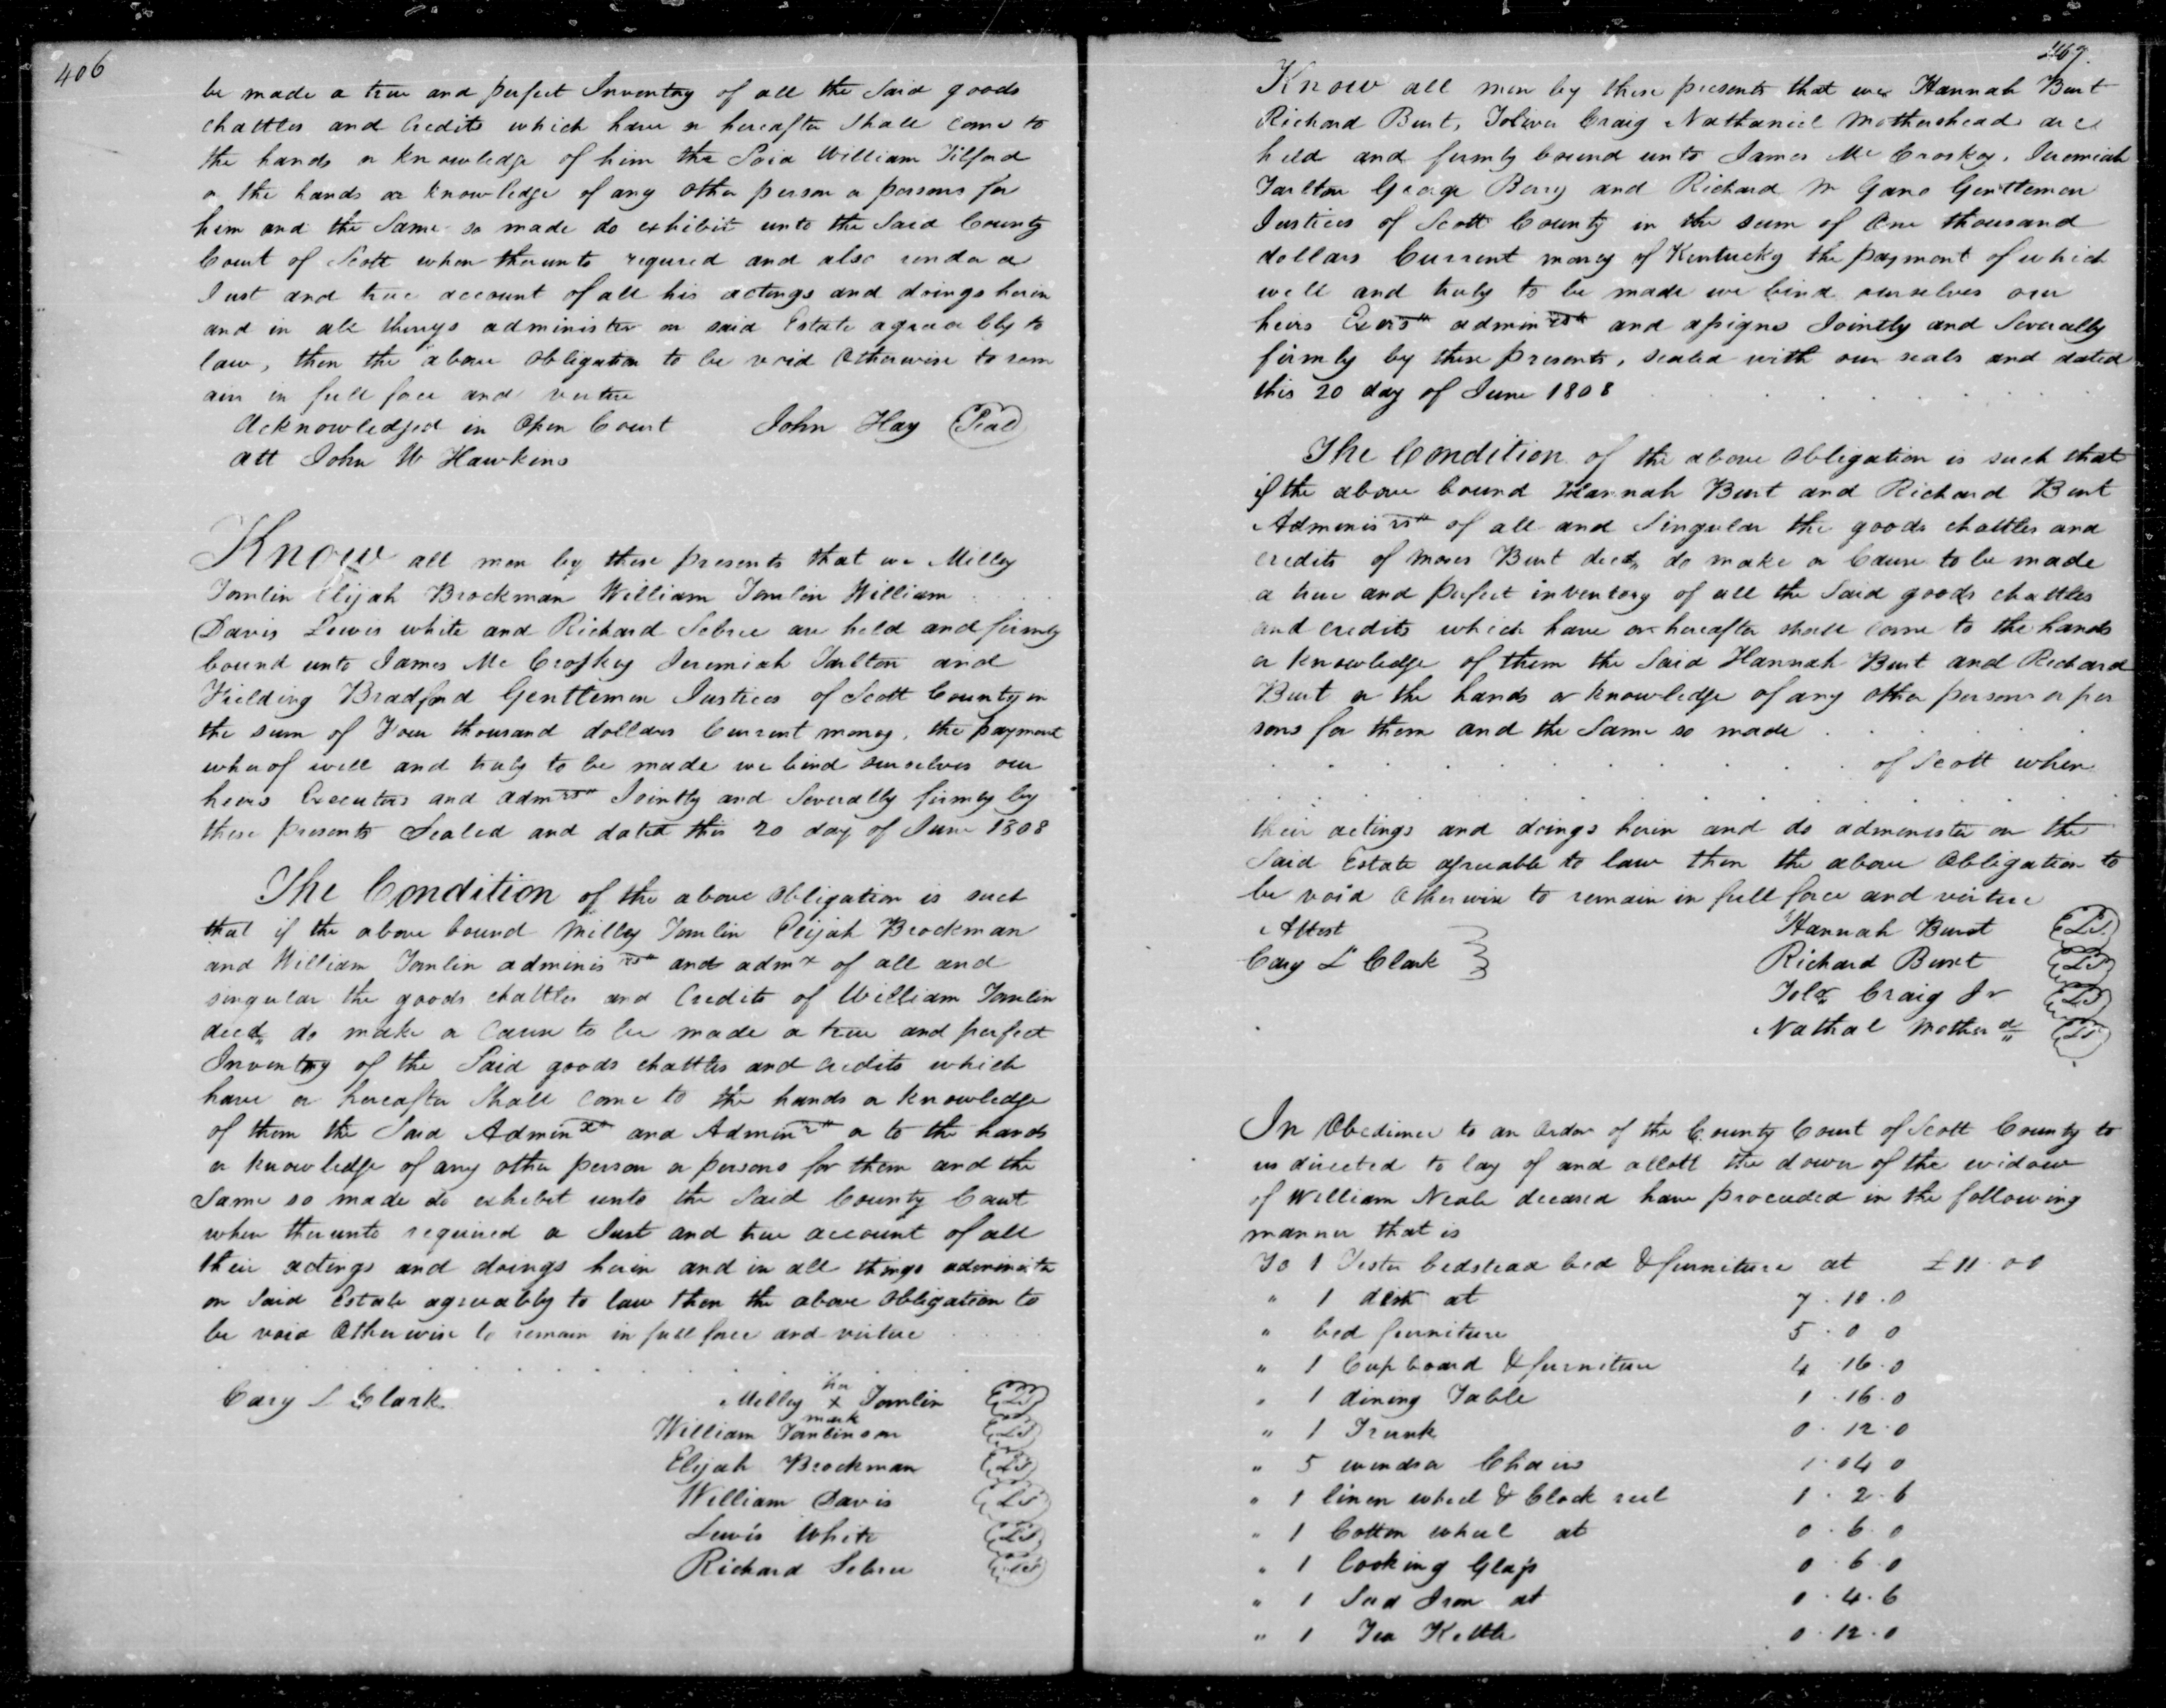 406
be made a true and perfect Inventry of all the Said goods
chattles and Credits which have or hereafter Shall come to
the hands or knowledge of him the Said William Tilford
or the hands or knowledge of any other person or persons for
him and the Same so made do exhibit unto the Said County
Court of Scott when therunto requred and also render a
Just and true account of all his actings and doings herein
and in all things administer on said Estate agreeably to
law, then the above obligation to be void Otherwise to rem
ain in full force and vertue
Acknowledged in Open Court John Hay Seal
att John W Hawkins
Know all men by these presents that we Milley
Tomlin Elijah Brockman William Tomlin William
Davis Lewis white and Richard Sebree are held and firmly
bound unto James Mc Croskey Jeremiah Tarlton and
Fielding Bradford Gentlemen Justices of Scott County in
the sum of Four thousand dollars Current money, the payment
wherof well and truly to be made we bind ourselves our
heirs Executors and admrs Jointly and Severally firmly by
these presents Sealed and dated this 20 day of June 1808
The Condition of the above obligation is such
that if the above bound Milley Tomlin Elijah Brockman
and William Tomlin adminisrs and admx of all and
singular the goods chattles and Credits of William Tomlin
decd do make or cause to be made a true and perfect
Inventry of the Said goods chattles and credits which
have or hereafter Shall come to the hands or knowledge
of them the Said Adminx and Adminrs or to the hands
or knowledge of any other person or persons for them and the
Same so made do exhibit unto the Said County Court
when therunto required a Just and true account of all
their actings and doings herin and in all things administer
on Said Estate agreeably to law then the above obligation to
be void Otherwise to remain in full force and virtue
Cary L Clark Milley her x mark Tomlin LS
William Tomlinson LS
Elijah Brockman LS
William Davis LS
Lewis White LS
Richard Sebree LS
407
Know all men by these presents that we Hannah Burt
Richard Burt, Toliver Craig Nathaniel Mothershead are
held and firmly bound unto James Mc Croskey, Jeremiah
Tarlton George Berry and Richard M Gano Gentlemen
Justices of Scott County in the sum of One thousand
dollars Current money of Kentucky the payment of which
well and truly to be made we bind ourselves our
heirs Exers adminrs and assigns Jointly and Severally
firmly by these presents, sealed with our seals and dated
this 20 day of June 1808
The Condition of the above obligation is such that
if the above bound Hannah Burt and Richard Burt
Adminisrs of all and Singular the goods chattles and
credits of Moses Burt decd, do make or Cause to be made
a true and perfect inventory of all the Said goods chattles
and credits which have or hereafter shall come to the hands
or knowledge of them the Said Hannah Burt and Richard
Burt or the hands or knowledge of any other persons or per
sons for them and the Same so made
of Scott when
their actings and doings herin and do administer on the
Said Estate agreeable to law then the above Obligation to
be void Otherwise to remain in full force and virtue
Attest Hannah Burt LS
Cary L Clark Richard Burt LS
Tolr Craig Jr LS
Nathal Mothersd LS
In Obedience to an order of the County Court of Scott County to
us directed to lay of and allott the dower of the widow
of William Neale deceased have proceeded in the following
manner that is
To 1 Tester bedstead bed & furniture at £ 11 . 0 0
" 1 desk at 7 . 10 . 0
" bed furniture 5 . 0 0
" 1 Cupboard & furniture 4 16 . 0
" 1 dining Table 1 . 16 . 0
" 1 Trunk 0 . 12 . 0
" 5 windsor Chairs 1 . 04 0
" 1 linen wheel & Clock reel 1 . 2 . 6
" 1 Cotton wheel at 0 . 6 . 0
" 1 looking Glass 0 . 6 . 0
" 1 Sad Iron at 0 . 4 . 6
" 1 Tea Kettle 0 . 12 . 0